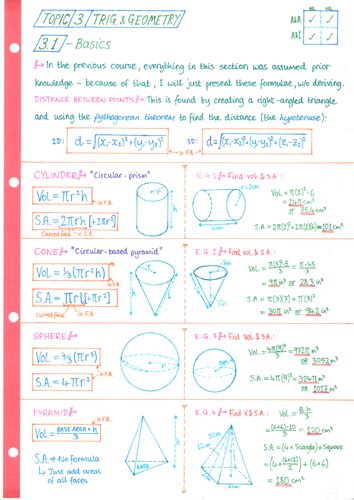 TOPIC 3 TRIG. & GEOMETRY
SL HL
A&A ✓ ✓
A&I ✓ ✓
3.1 - Basics
↳ In the previous course, everything in this section was assumed prior
knowledge - because of that, I will just present these formulae, w/o deriving.
DISTANCE BETWEEN POINTS ↳ This is found by creating a right-angled triangle
and using the pythagorean theorem to find the distance (the hypotenuse):
2D: d = √(x₁-x₂)²+(y₁-y₂)²
3D: d = √(x₁-x₂)²+(y₁-y₂)²+(z₁-z₂)²
in F.B.
CYLINDER ↳ "Circular-prism"
Vol = πr²h
in F.B.
S.A. = 2πrh [+2πr²]
Curved face in F.B.
r
h
E.G. 1 ↳ Find vol & S.A.:
r=2cm
Vol = π(2)²·6
= 24π cm³
or 75.4 cm³
S.A. = 2π(2)²+2π(2)(6) = 101 cm²
CONE ↳ "Circular-based pyramid"
Vol = 1/3(πr²h)
in F.B.
S.A. = πrl [+πr²]
curved face in F.B.
r
h
l
E.G. 2 ↳ Find vol & S.A.:
5in
S.A. = π(3)²+π(3)(7)
= 30π in² or 94.2 in²
SPHERE
Vol = 4/3(πr³)
in F.B.
S.A. = 4πr²
r
E.G. 3 ↳ Find Vol & S.A.:
Vol = 4π(9)³/3 = 972π m³
or 3052 m³
S.A. = 4π(9)² = 324π m²
or 1017 m²
PYRAMID
Vol = BASE AREA × h / 3
in F.B.
S.A. → No formula
↳ Just add areas
of all faces
h
E.G. 4 ↳ Find V. & S.A.:
10cm
12cm
Vol = B·h/3
= (6×6)·10/3 = 120 cm³
S.A. = (4×Triangle)+Square
= (4×(6×12)/2) + (6×6)
= 180 cm²